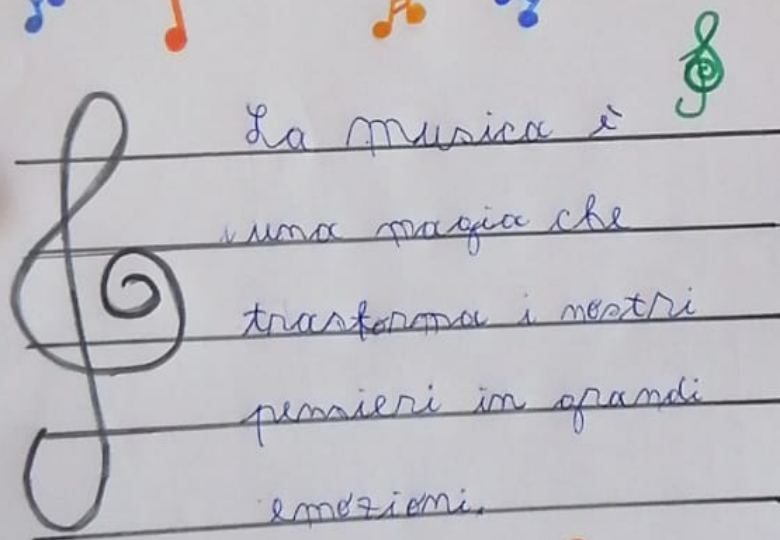 La musica è
una magia che
trasforma i nostri
pensieri in grandi
emozioni.